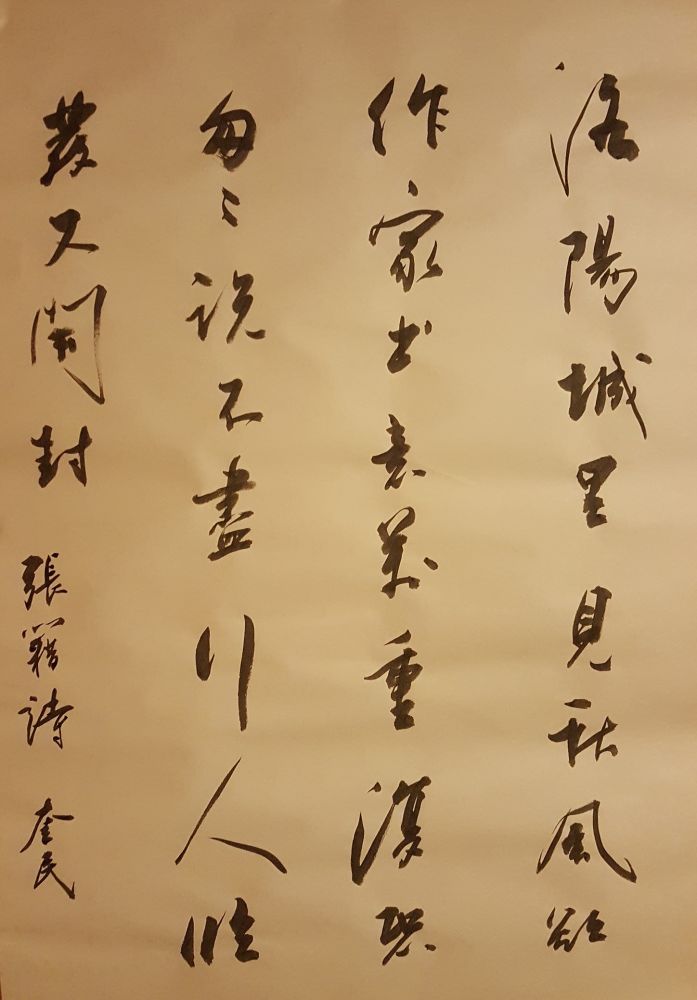 洛陽城里見秋風欲
作家书意萬重復恐
匆〻说不盡行人临
發又開封 張籍詩 奎民